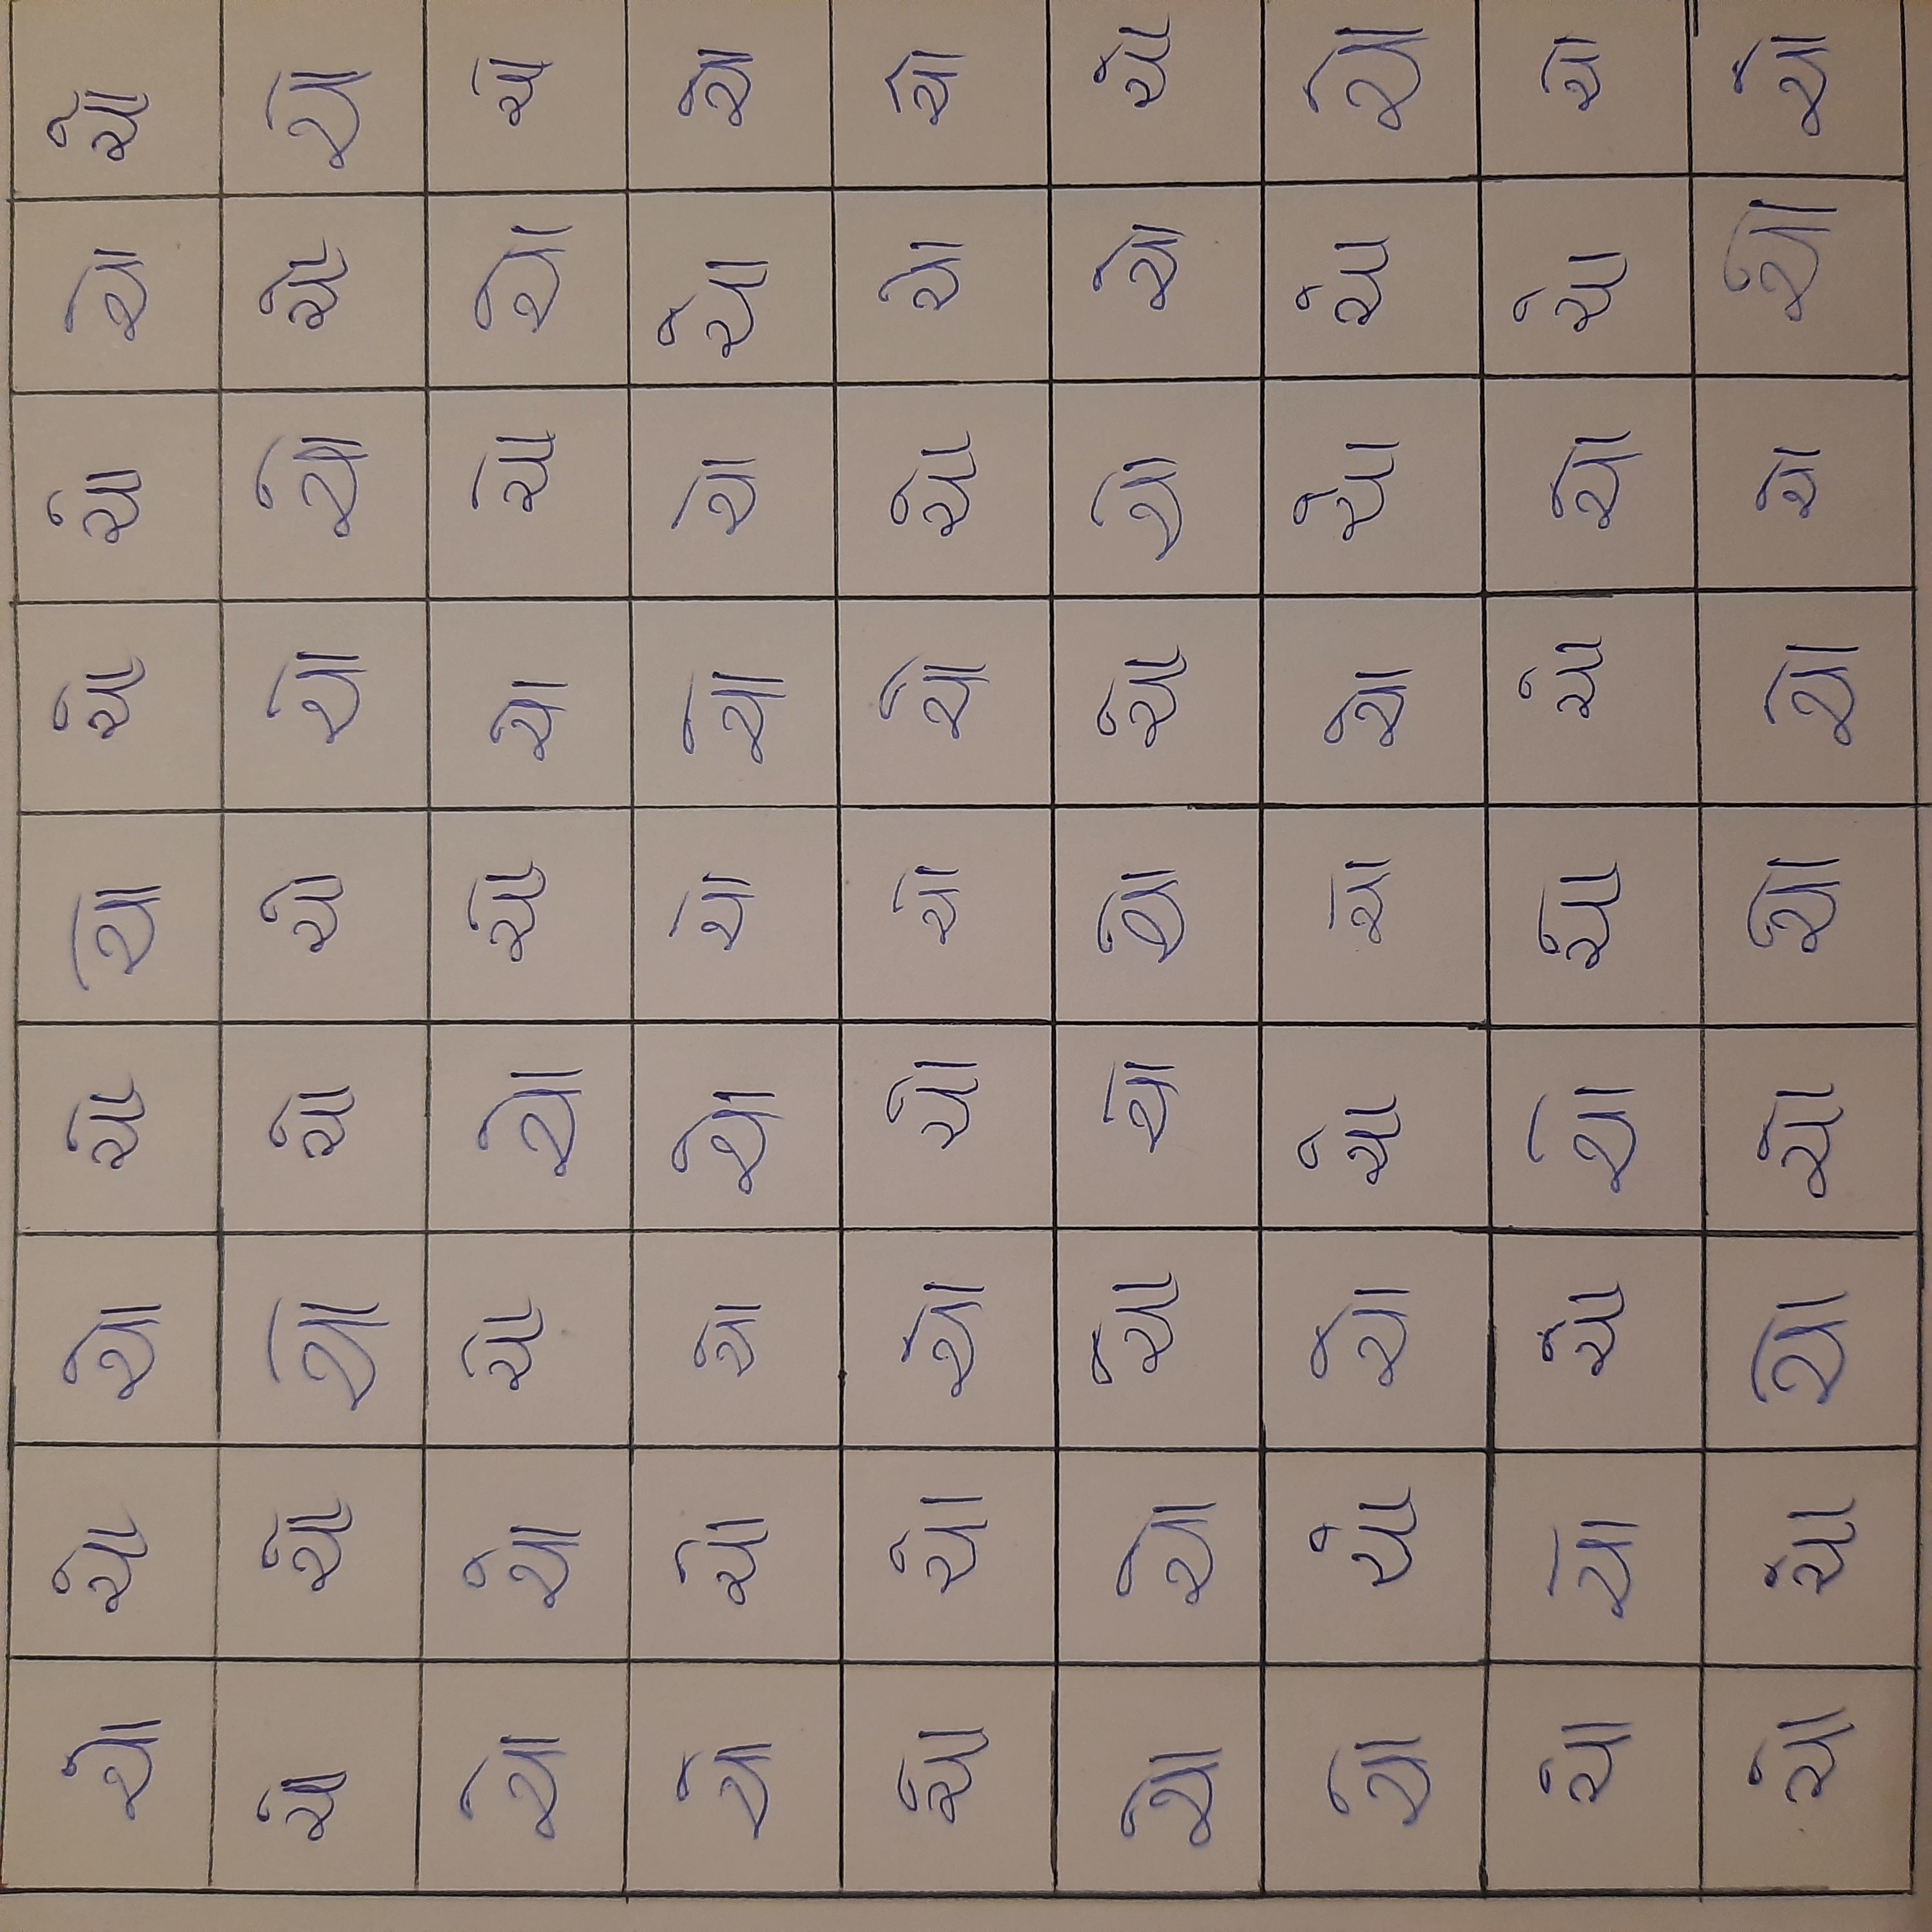 ચો ચો ચો ચો ચો ચો ચો ચો ચો
ચો ચો ચો ચો ચો ચો ચો ચો ચો
ચો ચો ચો ચો ચો ચો ચો ચો ચો
ચો ચો ચો ચો ચો ચો ચો ચો ચો
ચો ચો ચો ચો ચો ચો ચો ચો ચો
ચો ચો ચો ચો ચો ચો ચો ચો ચો
ચો ચો ચો ચો ચો ચો ચો ચો ચો
ચો ચો ચો ચો ચો ચો ચો ચો ચો
ચો ચો ચો ચો ચો ચો ચો ચો ચો